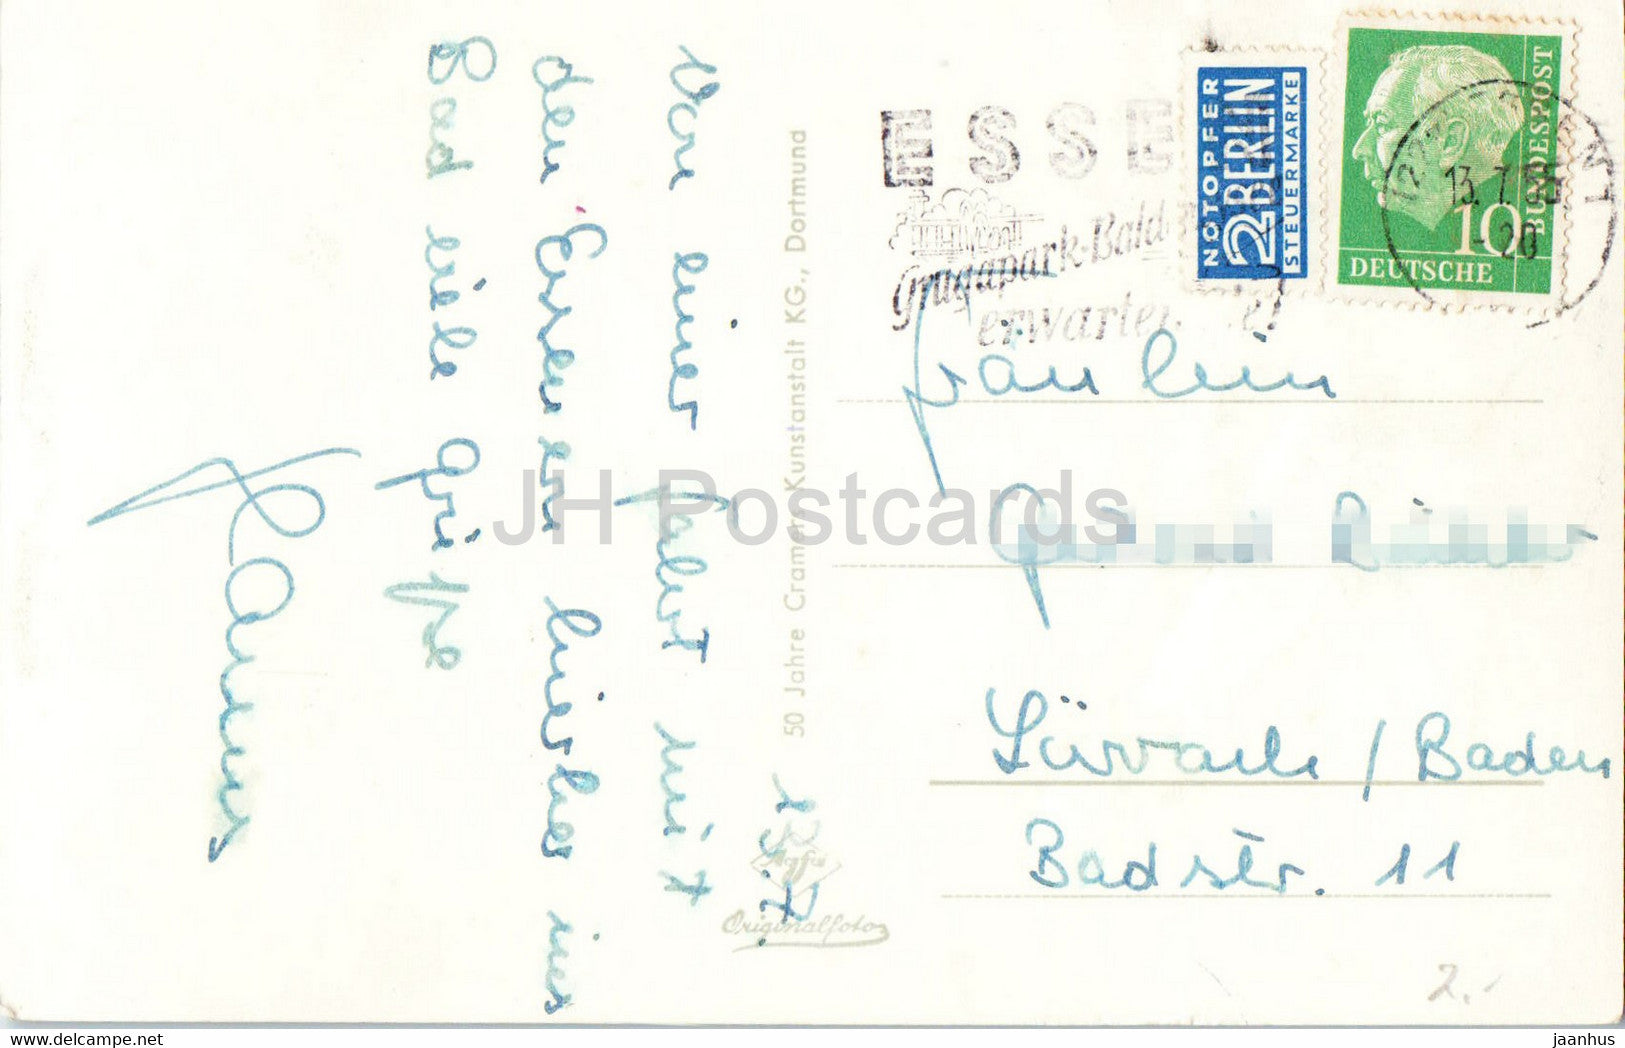 Von einer Fahrt mit
den Eseseen hierher ins
Bad viele Grüße
Hannes
50 Jahre Cramers Kunstanstalt KG., Dortmund
Agfa
Originalfoto
ESSE
Grugapark-Bald
erwartet
NOTOPFER
2 BERLIN
STEUERMARKE
DEUTSCHE
BUNDESPOST
10
13.7.
-20
Fräulein
Lörrach / Baden
Badstr. 11
2.-
JH Postcards
jaanhus
delcampe.net